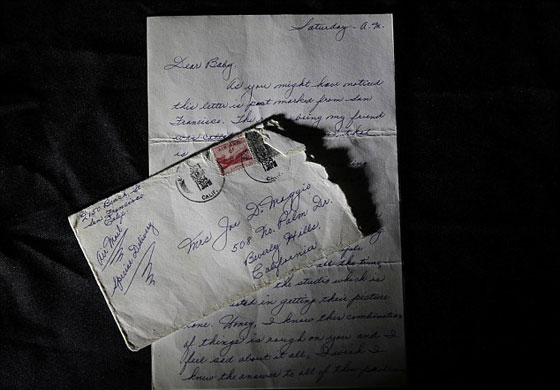 Saturday - A.M.
Dear Baby,
As you might have noticed
this letter is post marked from San
Francisco. The being my friend
was
is
2150 Beach St
San Francisco
Calif.
Air Mail
Special Delivery
CALIF.
CALIF.
Mrs Joe D. Maggio
508 No. Palm Dr.
Beverly Hills
California
all the time,
the studio which is
in getting their picture
done. Honey, I know this combination
of things is rough on you and I
feel sad about it all, I wish I
knew the answer to all of this